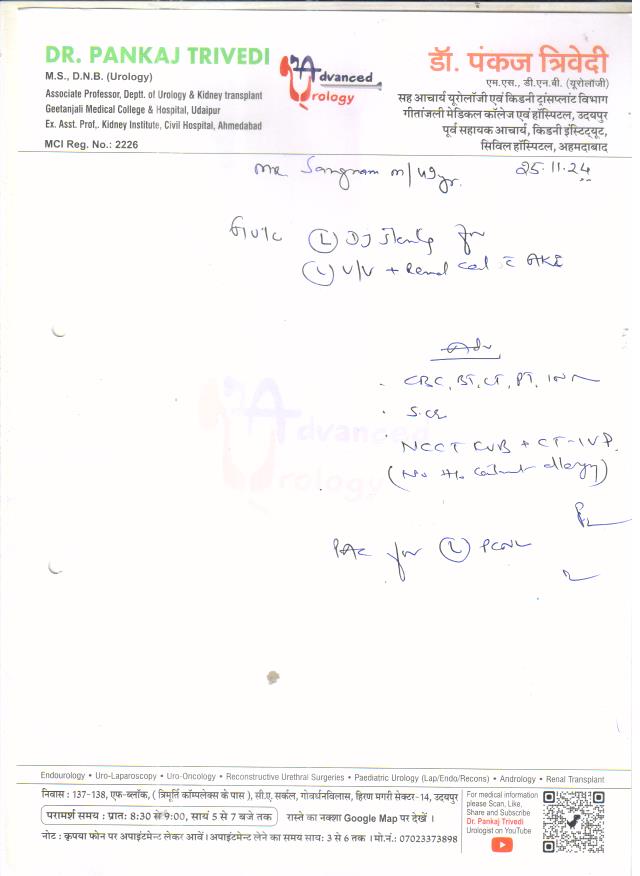 DR. PANKAJ TRIVEDI
M.S., D.N.B. (Urology)
Associate Professor, Deptt. of Urology & Kidney transplant
Geetanjali Medical College & Hospital, Udaipur
Ex. Asst. Prof,. Kidney Institute, Civil Hospital, Ahmedabad
MCI Reg. No.: 2226
Advanced
Urology
डॉ. पंकज त्रिवेदी
एम.एस., डी.एन.बी. (यूरोलॉजी)
सह आचार्य यूरोलॉजी एवं किडनी ट्रांसप्लांट विभाग
गीतांजली मेडिकल कॉलेज एवं हॉस्पिटल, उदयपुर
पूर्व सहायक आचार्य, किडनी इंस्टिट्यूट,
सिविल हॉस्पिटल, अहमदाबाद
Mr Sangram m/49yr. 25.11.24
(L) DJ Stenting for
(L) U/V + Renal cal c AKI
Adv
CBC, BT, CT, PT, INR
S.Cr
NCCT KUB + CT-IVP.
(No H/o contrast allergy)
PAC for (L) PCNL
Advanced
Urology
Endourology • Uro-Laparoscopy • Uro-Oncology • Reconstructive Urethral Surgeries • Paediatric Urology (Lap/Endo/Recons) • Andrology • Renal Transplant
निवास : 137-138, एफ-ब्लॉक, ( त्रिमूर्ति कॉम्पलेक्स के पास ), सी.ए. सर्कल, गोवर्धनविलास, हिरण मगरी सेक्टर-14, उदयपुर
परामर्श समय : प्रातः 8:30 से 9:00, सायं 5 से 7 बजे तक रास्ते का नक्शा Google Map पर देखें ।
नोट : कृपया फोन पर अपाइंटमेन्ट लेकर आवें। अपाइंटमेन्ट लेने का समय सायः 3 से 6 तक । मो.नं.: 07023373898
For medical information
please Scan, Like,
Share and Subscribe
Dr. Pankaj Trivedi
Urologist on YouTube